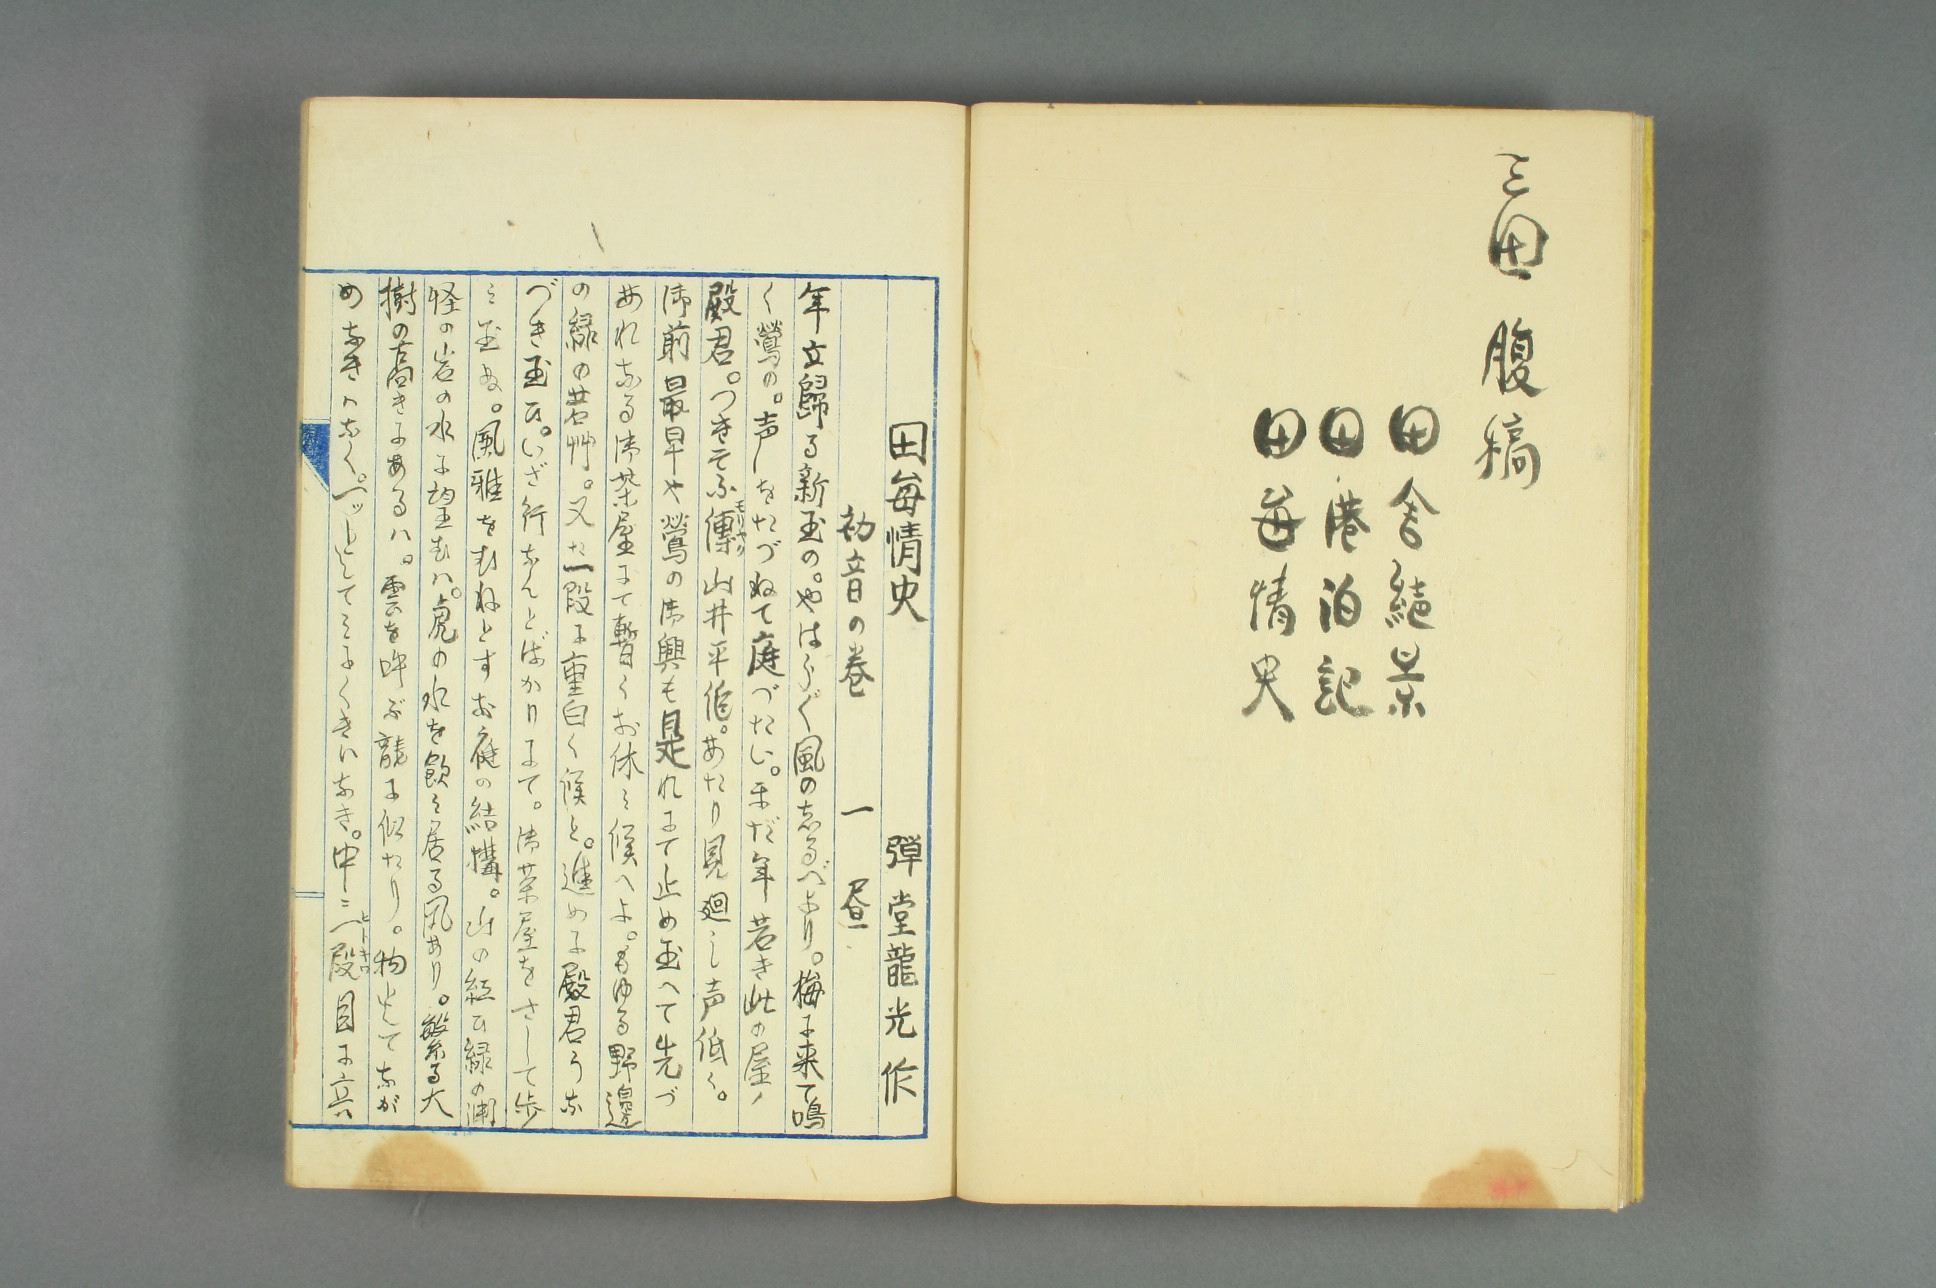 三田腹稿
田舎絶景
田港泊記
田毎情史
田毎情史 弾堂龍光作
初音の巻 一昼
年立歸る新玉の。やはらぐ風のしるべより。梅に来て鳴
く鶯の。声をたづねて庭づたい。まだ年若き此の屋ノ
殿君。つきそふ傅山井平作。あたり見廻し声低く。
モリヤク
御前最早や鶯の御興も是れにて止め玉へて先づ
あれなる御茶屋にて暫くお休ミ候へよ。もゆる野邊
の緑の若艸。又た一段に面白く候と。進めに殿君うな
づき玉ひ。いざ行なんとばかりにて。御茶屋をさして歩
ミ玉ぬ。風雅をむねとすお庭の結構。山の紅ひ緑の渕
怪の岩の水に望むハ。虎の水を飲ミ居る風あり。繁る大
樹の高きにあるハ。雲を呼ぶ龍に似たり。物としてなが
めなきハなく。一ッとしてミにくきハなき。中ニ一段目に立
ヒトキワ